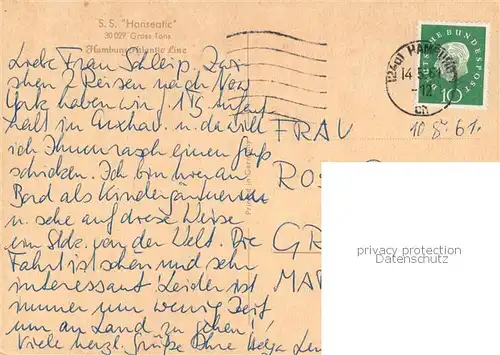 S. S. "Hanseatic"
30 029 Gross Tons
Hamburg-Atlantic Line
Liebe Frau Schleip. Zwi-
schen 2 Reisen nach New
York haben wir 1 Tg Aufent
halt in Cuxhav. u. da will
ich Ihnen rasch einen Gruß
schicken. Ich bin hier an
Bord als Kindergärtnerin
u. sehe auf diese Weise
ein Stck. von der Welt. Die
Fahrt ist schön und sehr
interessant. Leider ist
immer nur wenig Zeit
um an Land zu gehen!
Viele herzl. Grüße Ihre Helga
FRAU
RO
GR
MA
Printed in Germany
(24a) HAMBURG
14.
-12
ch
DEUTSCHE BUNDESPOST
10
10 8. 61.
privacy protection
Datenschutz